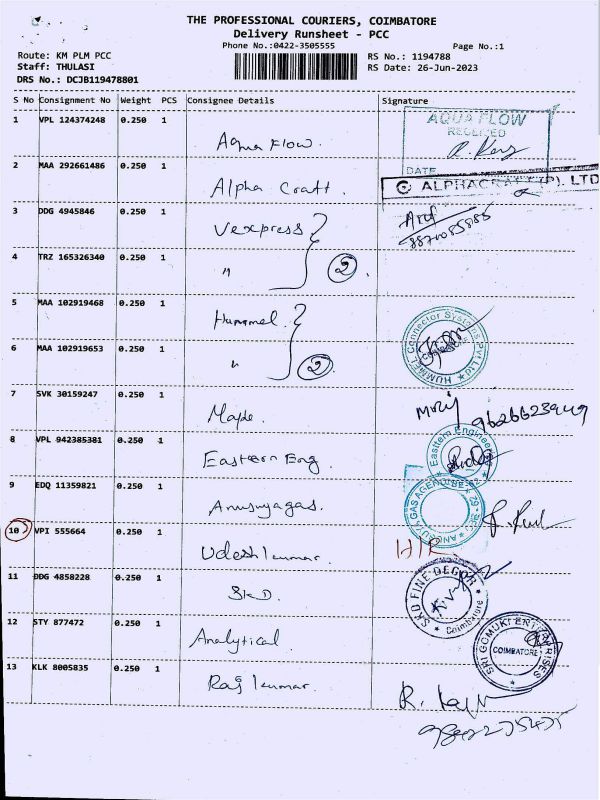 THE PROFESSIONAL COURIERS, COIMBATORE
Delivery Runsheet - PCC
Phone No.:0422-3505555 Page No.:1
Route: KM PLM PCC RS No.: 1194788
Staff: THULASI RS Date: 26-Jun-2023
DRS No.: DCJB119478801
S No Consignment No Weight PCS Consignee Details Signature
1 VPL 124374248 0.250 1 Aqua Flow. AQUA FLOW
RECEIVED
DATE
2 MAA 292661486 0.250 1 Alpha Craft. ALPHACRAFT (P). LTD
3 DDG 4945846 0.250 1 Vexpress
4 TRZ 165326340 0.250 1 " 2
5 MAA 102919468 0.250 1 Hummel. HUMMEL Connector Systems Pvt Ltd
6 MAA 102919653 0.250 1 " 2
7 SVK 30159247 0.250 1 Maple.
8 VPL 942385381 0.250 1 Eastern Eng Eastern Engineer
9 EDQ 11359821 0.250 1 Anusuyagas. ANUSUYA GAS AGENCIES
10 VPI 555664 0.250 1 Udeshkumar.
11 DDG 4858228 0.250 1 SKD. SKD FINE DECOR Coimbatore
12 STY 877472 0.250 1 Analytical. SRI GOMUKI ENTERPRISES COIMBATORE
13 KLK 8005835 0.250 1 Rajkumar.